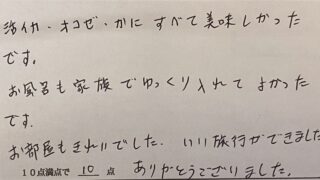 活イカ・オコゼ・かに すべて美味しかった
です。
お風呂も家族でゆっくり入れてよかった
です。
お部屋もきれいでした。いい旅行ができました
10点満点で 10 点 ありがとうございました。